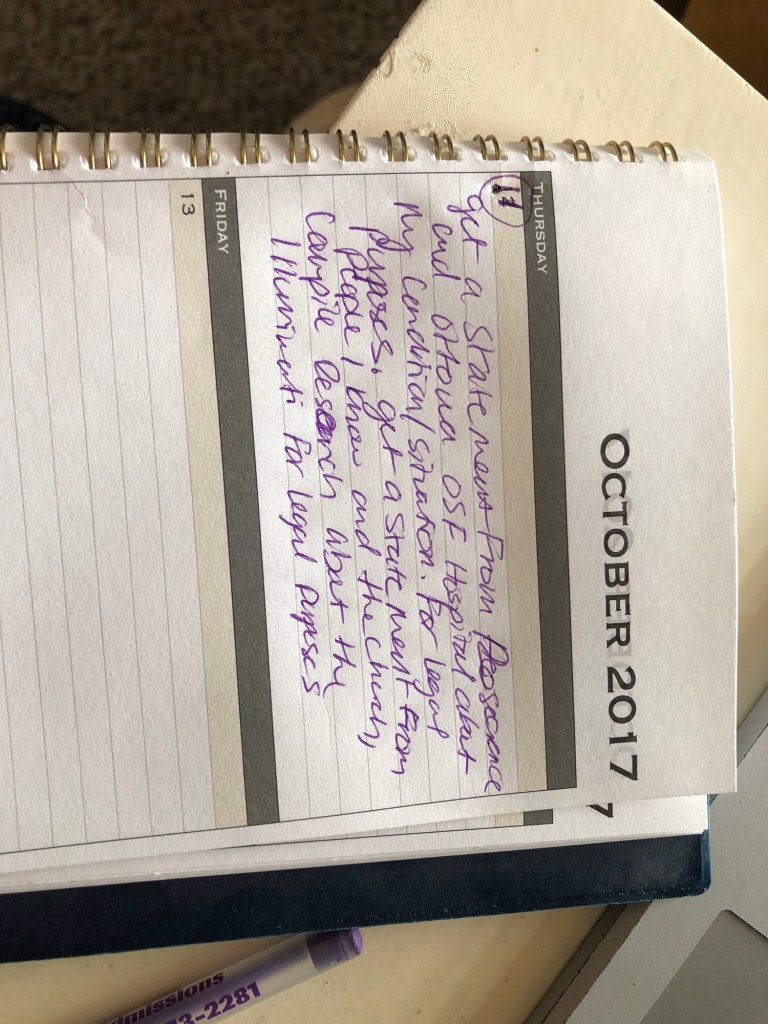 OCTOBER 2017
7
THURSDAY
12
get a Statement From
and Ottowa OSF Hospital about
my Condition/situation. For legal
purposes, get a statement From
people I know and the church,
Compile Research about the
Illuminati For legal purposes
FRIDAY
13
dmissions
73-2281